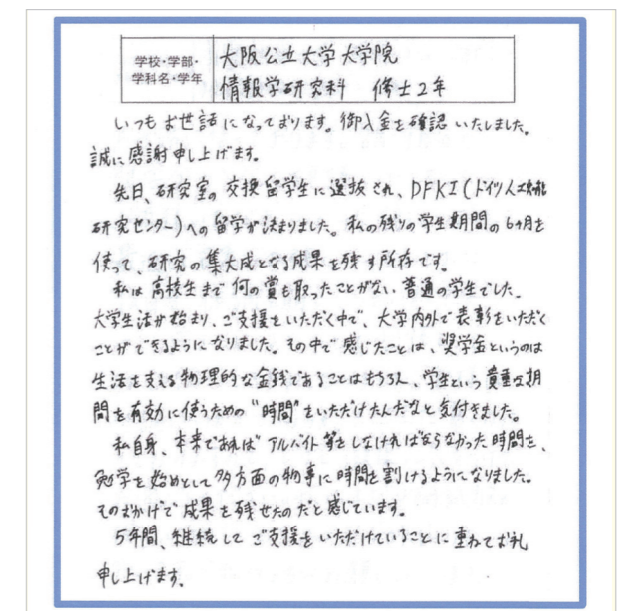 学校・学部・
学科名・学年
大阪公立大学大学院
情報学研究科 修士2年
いつもお世話になっております。御入金を確認いたしました。
誠に感謝申し上げます。
先日、研究室の交換留学生に選抜され、DFKI(ドイツ人工知能
研究センター)への留学が決まりました。私の残りの学生期間の6ヶ月を
使って、研究の集大成となる成果を残す所存です。
私は高校生まで何の賞も取ったことがない普通の学生でした。
大学生活が始まり、ご支援をいただく中で、大学内外で表彰をいただく
ことができるようになりました。その中で感じたことは、奨学金というのは
生活を支える物理的な金銭であることはもちろん、学生という貴重な期
間を有効に使うための"時間"をいただけたんだなと気付きました。
私自身、本来であればアルバイト等をしなければならなかった時間を、
勉学を始めとして多方面の物事に時間を割けるようになりました。
そのおかげで成果を残せたのだと感じています。
5年間、継続してご支援をいただけていることに重ねてお礼
申し上げます。